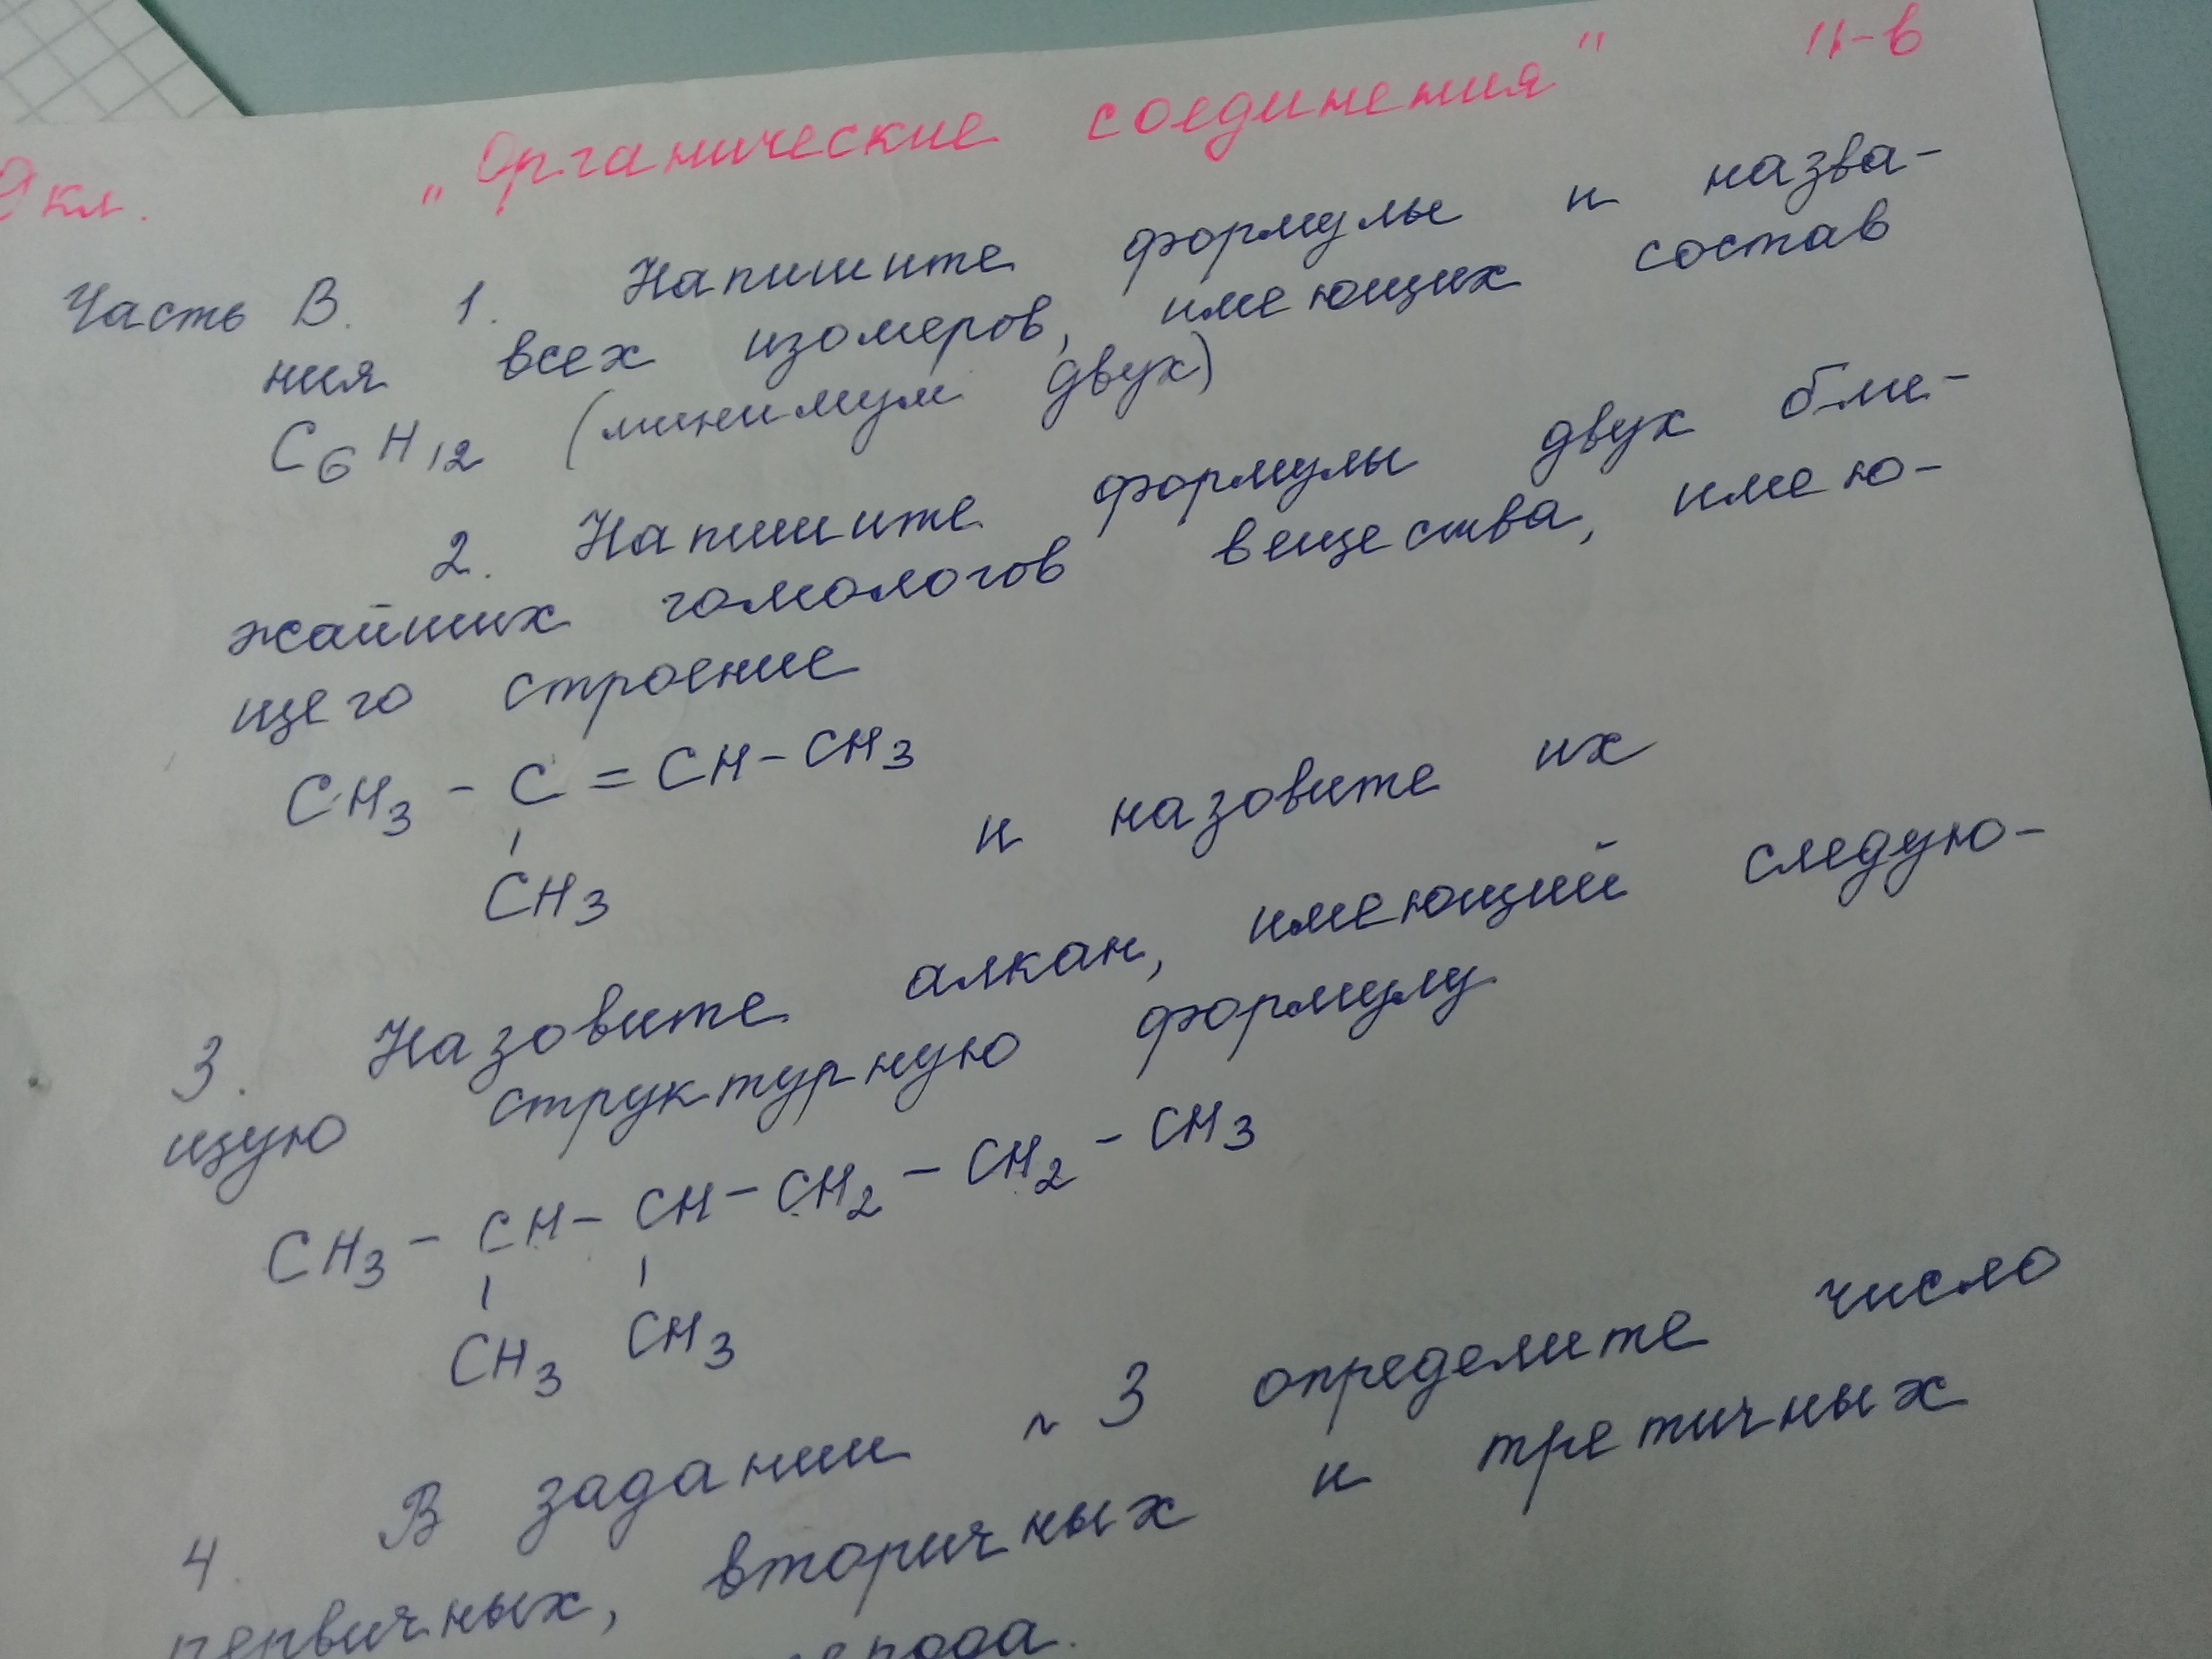 11-в
9 кл. „Органические соединения"
Часть В. 1. Напишите формулы и назва-
ния всех изомеров, имеющих состав
C6H12 (минимум двух)
2. Напишите формулы двух бли-
жайших гомологов вещества, имею-
щего строение
CH3 - C = CH - CH3
CH3 и назовите их
3. Назовите алкан, имеющий следую-
щую структурную формулу
CH3 - CH - CH - CH2 - CH2 - CH3
CH3 CH3
4. В задании ~ 3 определите число
первичных, вторичных и третичных